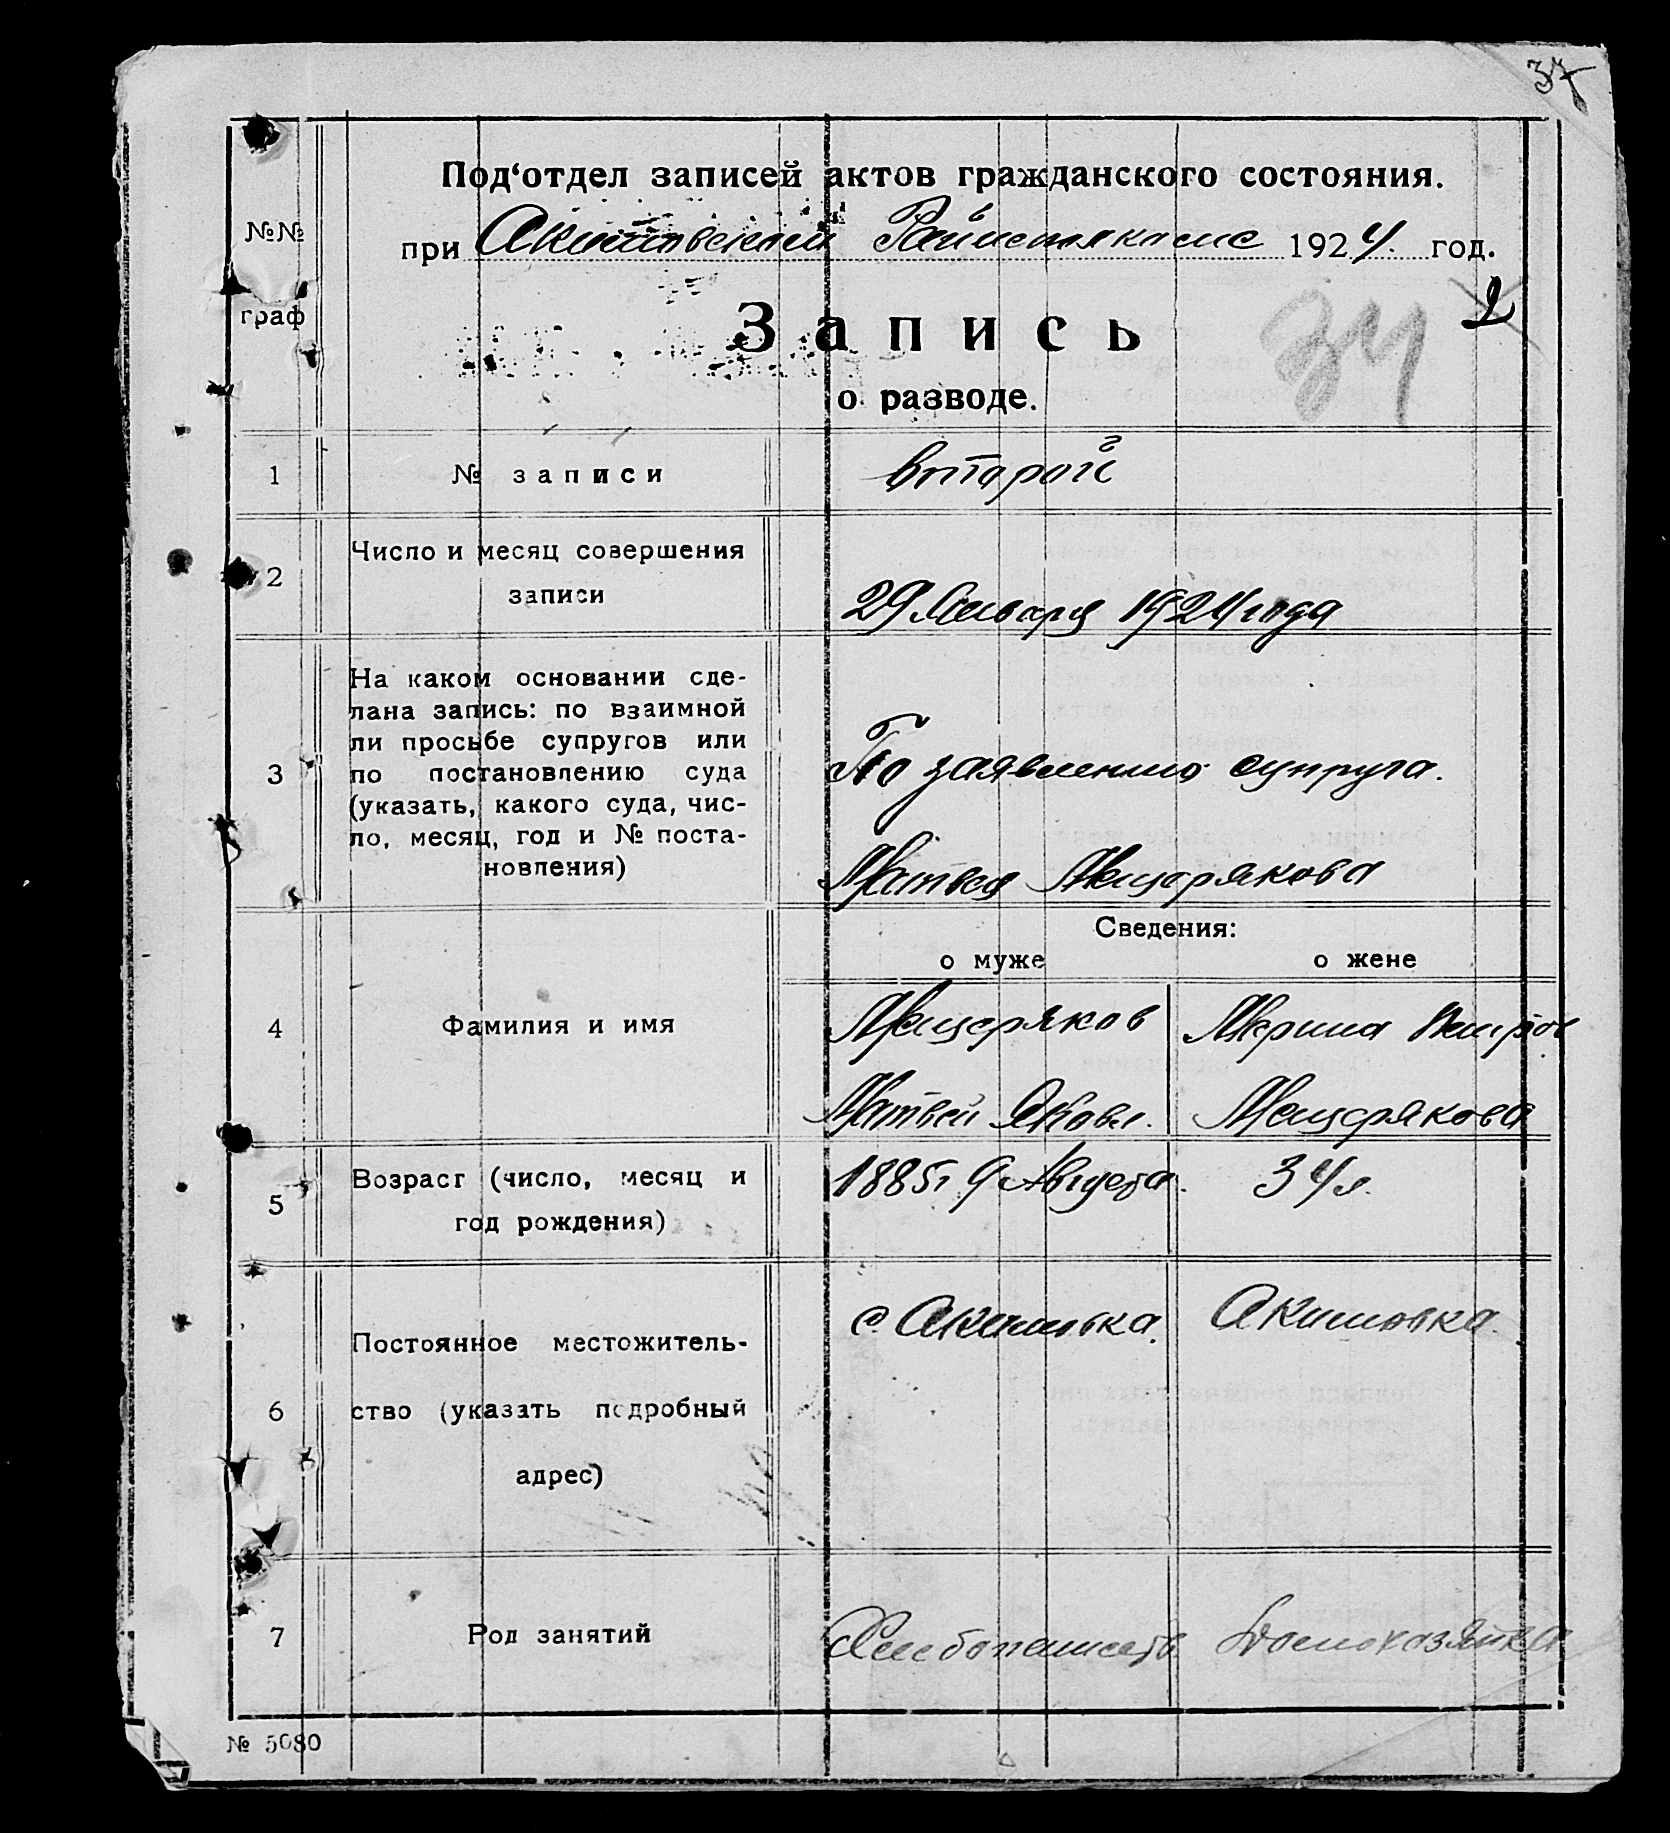 37
Под‘отдел записей актов гражданского состояния.
№№ граф
при Акимовском Райисполкоме 1924. год.
2
34
Запись
о разводе.
1 № записи второй
2 Число и месяц совершения
записи 29 Января 1924 года
На каком основании сде-
лана запись: по взаимной
ли просьбе супругов или
3 по постановлению суда По заявлению супруга.
(указать, какого суда, чис-
ло, месяц, год и № поста-
новления) Матвея Мещерякова
Сведения:
о муже о жене
4 Фамилия и имя Мещеряков
Матвей Яковл. Мещерякова
5 Возраст (число, месяц и 1885г 9 Августа. 34 л.
год рождения)
с. Акимовка. Акимовка.
Постоянное местожитель-
6 ство (указать подробный
адрес)
7 Род занятий Хлебопашеств Домохозяйка
№ 5080